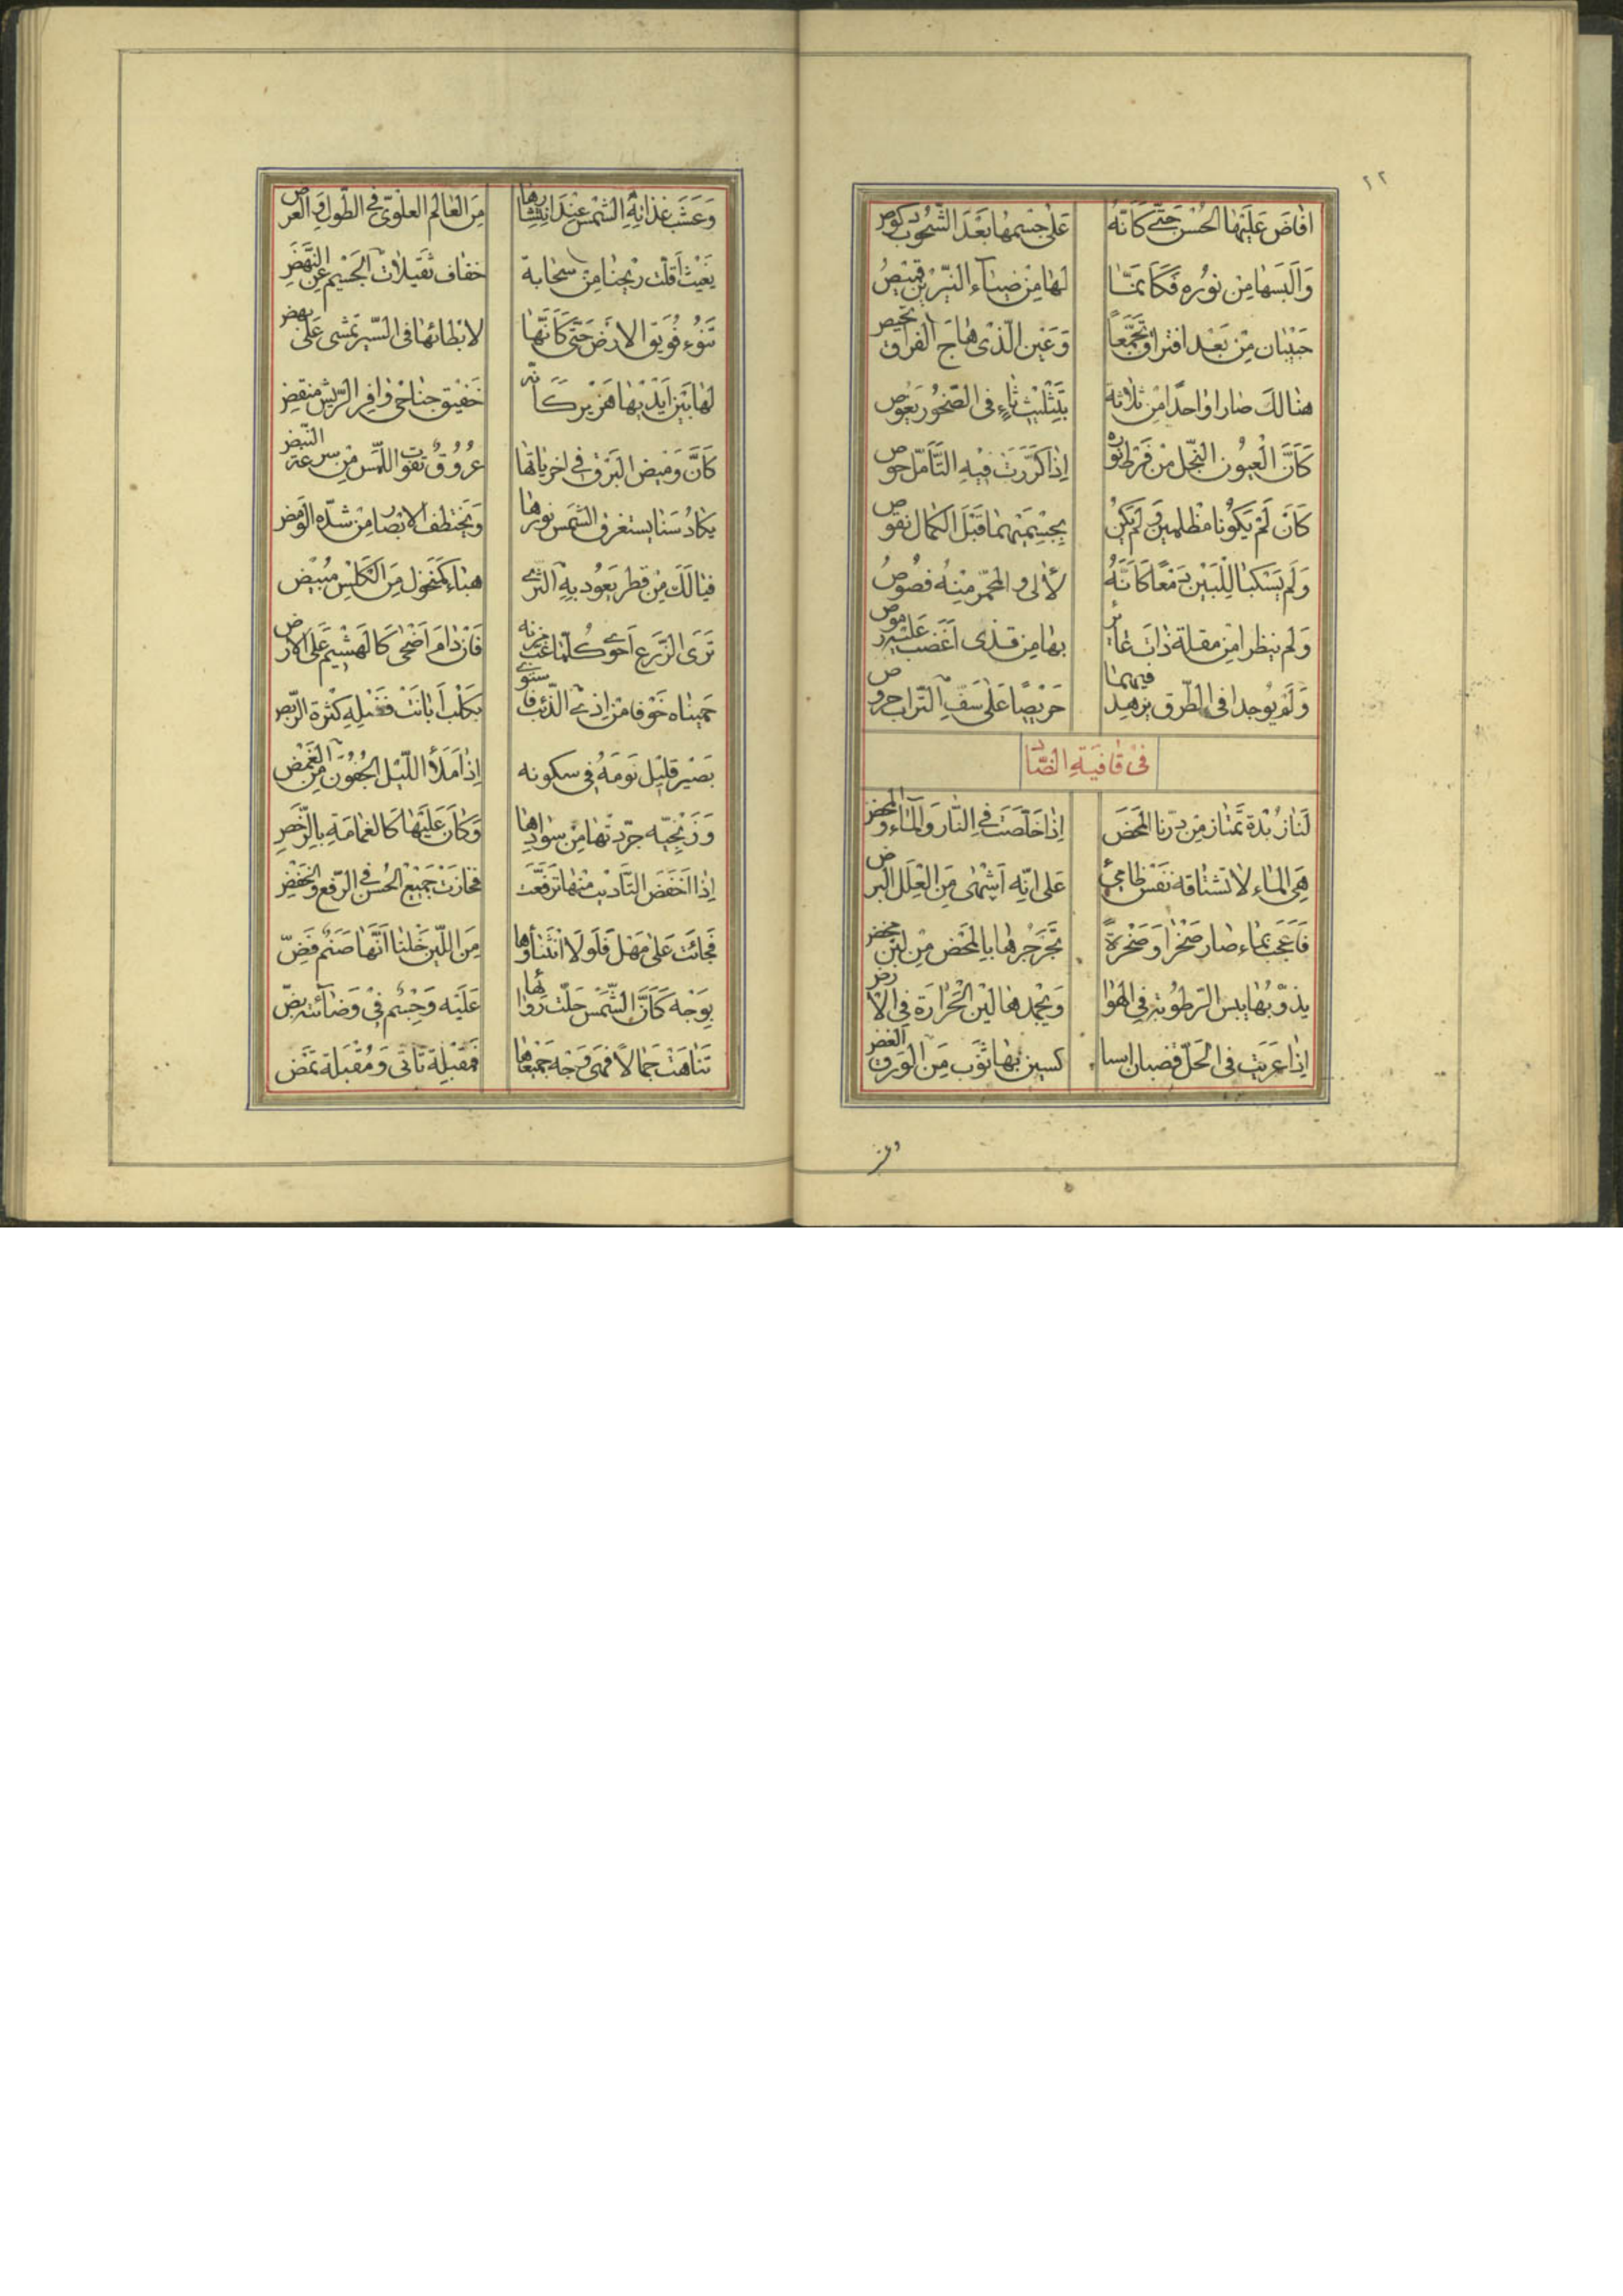 ٢٢
افاضَ عَلَيْهَا الحُسْنَ حَتّى كَأنّهُ عَلى جِسْمِها بَعْدَ الشُّحُوبِ
وَاَلبَسَها مِنْ نُورِهِ فَكَاَنّمَا لَها مِنْ ضِيآءِ النّيّرَيْنِ قَمِيْصُ
حَبْيبان مِنْ بَعْدِ افتراقٍ تَجَمّعا وَعَينِ الّذى هاجَ الفراق
هنالكَ صارا واحدًا مِن ثلاثة بِتَثْلِيثِ ثاءٍ فى الصّخورِ يَغوص
كَأنَّ الْعُيُونَ النُّجْلَ مِنْ فَرْطِ اِذا كَرّرَتْ فِيْهِ التّأَمّل
كَأنْ لَمْ يَكُونا مُظلمينِ وَلَمْ يَكُنْ بِجِسْمَيْهِما قَبْلَ الكَمال نقوص
وَلَم يَسْكبا لِلْبَيْنِ دَمْعًا كَاَنّهُ لألى والمحمّر مِنْهُ فصُوصُ
وَلم ينظرا مِن مقلة ذات غائر بها مِن قذى
وَلَمْ يُوجدا فى الطّرق حَرْيصًا عَلى سَفِّ التّراب
فى قافيَةِ الضّاد
لَنا زُبْدة تمتاز مِن دَرّنا المَحْضَ اِذا خَلَصَتْ فِى النّار وَالمآء والمخض
هِىَ الماء لا تشتاقه نَفْسُ ظامِئٍ عَلى انّه اَشهْى مِنَ العِلَلِ البرض
فَاَعْجَبْ بماء صارَ صَخْرًا وَصَخْرةً تجرجرها بالمحض مِن لبنٍ محض
يذوّبُها يبس الرّطوبة فى الهوا وَيجمدها ليْن الحَرارَة فِى الارض
اِذا عَرِيَتْ فى الحَلّ قضبان كسين بها ثَوْب مِنَ الوَرقِ الغض
وعن
مِنَ العالَمِ العلوىّ فى الطّولِ والعرض
خفاف ثقيلات الجَسْيم عن النّهض
تَنوُء فُوَيْق الارْض حَتّى كَأنّها لابْطائها فى السّيرِ تمشى عَلى
لَها بَيْنَ اَيْدْيها هَزْيز كَأنّه خَفيق جناحى وافر الرّيش منقض
كَانّ وَميض البَرق فى اخرياتها عُروُق تفوت اللّمس مِن سرعة النّبض
يكادُ سَنا يستغرق الشمس نورها وَيختطف الابْصار مِن شدّه الومض
فيا لَكَ مِن قطر يَعُود بِهِ الثّرى هباءً كمنخول مِنَ الكلس مُبْيَض
تَرَى الزّرع اَحوى كُلّما فاِن دامَ اَضْحى كالهَشْيم عَلى الارض
حَمَيناه خَوْفا مِن اذى الذّئب بكلْب
بَصْير قليْل نَومُهُ فى سكونه اِذا مَلَأ اللّيْلُ الجُفُونَ مِنَ الغَمْض
وَزَنْجيّة جرّدتها مِن سوادها وَكانَ عَلَيْها كالغمامَة
اِذا اَخفَضَ التّأديب مِنها تَرَفّعَتْ فحازَتْ جَميْعَ الحُسْن فى الرّفع والخفض
فَجائَتْ عَلى مَهْل فَلَوْلا انْثناؤها مِنَ اللّين خِلنا اَنّها صَنَمٌ فضّ
بِوَجْه كَأنَّ الشّمْسَ حَلّت رِوائها عَلَيْه وَجِسْمٍ فى وَضائته بضّ
تَناهَتْ جَمالًا فَهى وَجْه جَمْيعها فَمقبِلة تأتى وَمُقْبَلة تمض